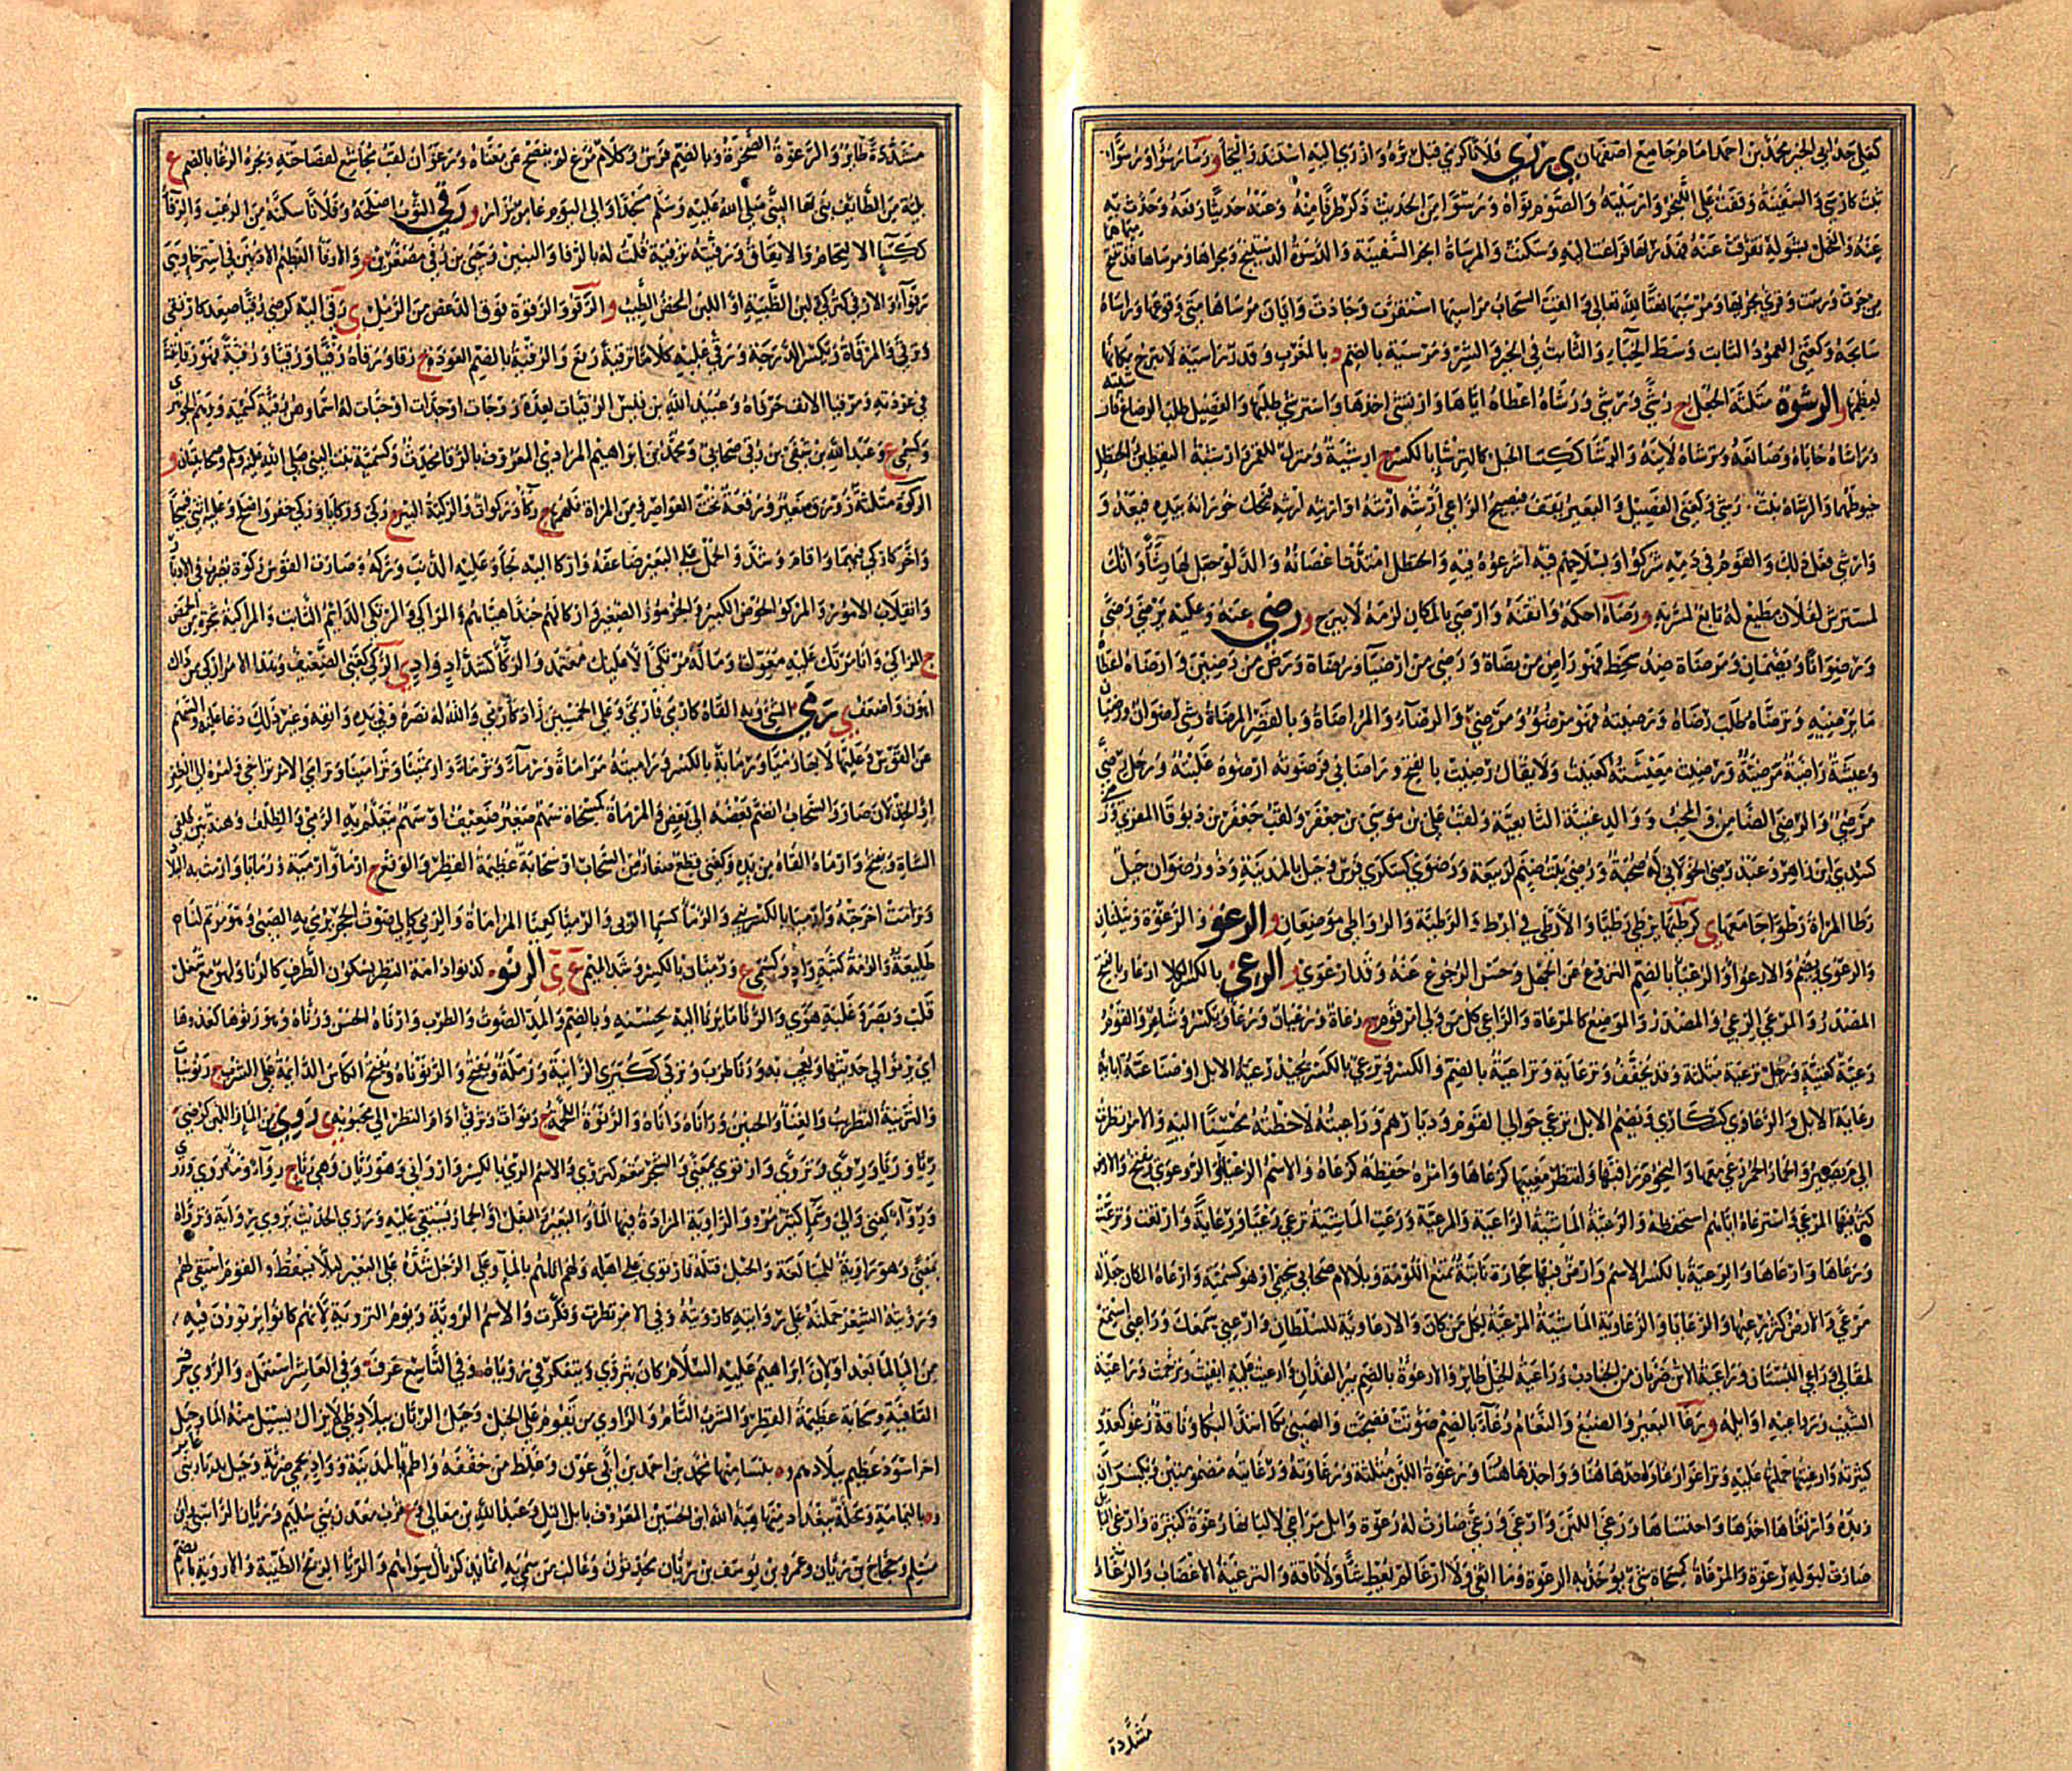 كعلي جد ابي الخير محمد بن احمد امام جامع اصفهان ي رزى فلانا كرمي قبل بره وارزى اليه استند والتجأ و رسا رسوا ورسوا
ثبت كارسى والسفينة وقفت على اللنجر وارسيته والصوم نواه ورسوا من الحديث ذكر طرفا منه وعنه حديثا رفعه وحدث به
عنه والفحل بشوله تفرقت عنه فهدر بها فراغت اليه وسكنت والمرساة انجر السفينة والرسوة الدستينج ومجراها ومرساها قد تفتح ميماهما
من جرت ورست وقرئ مجريها ومرسيها نعتا لله تعالى والقت السحاب مراسيها استقرت وجادت وايان مرساها متى وقوعها وراساه
سابحه وكغني العمود الثابت وسط الخباء والثابت في الخير والشر ومرسية بالضم د بالمغرب وقدر راسية لا تبرح مكانها
لعظمها و الرشوة مثلثة الجعل ج رشى ورشى ورشاه اعطاه اياها وارتشى اخذها واسترشى طلبها والفصيل طلب الرضاع فارشيته
وراشاه حاباه وصانعه وترشاه لاينه والرشا ككسا الحبل كالترشا بالكسر ج ارشية ومنزل للقمر وارشية اليقطين والحنظل
خيوطهما والرشاة نبت وكغني الفصيل والبعير يقف فيصيح الراعي ارشه ارشه او ارشه ارشه فيحك خورانه بيده فيعدو
وارشى فعل ذلك والقوم في دمه شركوا وبسلاحهم فيه اشرعوه فيه والحنظل امتدت اغصانه والدلو جعل لها رشاء وانك
لمسترش لفلان مطيع له تابع لمسرته و رصاه احكمه واتقنه وارصى بالمكان لزمه لا يبرح و رضي عنه وعليه يرضى رضى
ورضوانا ويضمان ومرضاة ضد سخط فهو راض من رضاة ورضي من ارضياء ورضاة ورض من رضين وارضاه اعطاه
ما يرضيه وترضاه طلب رضاه ورضيته فهو مرضو ومرضي والرضاء والمراضاة وبالقصر المرضاة ورضي رضوان ورضيان
وعيشة راضية مرضية ورضيت معيشته كعنيت ولا يقال رضيت بالفتح وراضاني فرضوته ارضوه غلبته ورجل رضى
مرضي والرضي الضامن والمحب ووالد غنية التابعية ولقب علي بن موسى بن جعفر ولقب جعفر بن دبوقا المقرئ
كسدى ابن زاهر وعبد رضى الخولاني له صحبة ورضى بيت صنم لربيعة ورضوى كسكرى فرس وجبل بالمدينة وذو رضوان جبل
رطا المراة رطوا جامعها ي كرطيها يرطي رطيا والارطى في ا ر ط والرطية والرواطي موضعان و الرعو والرعوة ويثلثان
والرعوى ويضم والارعوا والرعيا بالضم النزوع عن الجهل وحسن الرجوع عنه وقد ارعوى ي الرعي بالكسر الكلا ج ارعا وبالفتح
المصدر والمرعى الرعي والمصدر والموضع كالمرعاة والراعي كل من ولي امر قوم ج رعاة ورعيان ورعا ويكسر وشاعر والقوم
رعية كغنية ورجل ترعية مثلثة وقد يخفف وترعاية وتراعية بالضم والكسر وترعي بالكسر يجيد رعية الابل او صناعته صناعة آبائه
رعاية الابل والرعاوى كسكارى ويضم الابل ترعى حوالي القوم وديارهم وراعيته لاحظته محسنا اليه والامر نظرت
الى م يصير والحمار الحمر رعى معها والنجوم راقبها وانتظر مغيبها كرعاها وامره حفظه كرعاه والاسم الرعيا والرعوى ويفتح والارض
كثر فيها المرعى واسترعاه اياهم استحفظه والرعية الماشية الراعية والمرعية ورعت الماشية ترعى رعيا ورعاية وارتعت وترعت
ورعاها وارعاها والرعية بالكسر الاسم وارض فيها حجارة ناتئة تمنع اللومة وبلا لام صحابي سحيمي او هو كسمية وارعاه المكان جعله له
مرعى والارض كثر رعيها والرعايا والرعاوية الماشية المرعية لكل من كان والارعاوية للسلطان وارعني سمعك وراعني استمع
لمقالي وراعي البستان وراعية الاتن ضربان من الجنادب وراعية الخيل طائر والارعوة بالضم نير الفدان وارعيت عليه ابقيت وترحمت وراعية
الشيب رواعيه اوائله و رغا البعير والضبع والنعام رغاء بالضم صوتت فضجت والصبي بكا اشد البكا وناقة رغو كعدو
كثيرته وارغيتها حملتها عليه وتراغوا رغا واحد هاهنا وواحد هاهنا ورغوة اللبن مثلثة ورغاوته ورغايته مضمومتين ويكسران
زبده وارتغاها اخذها واحتساها ورغى اللبن وارغى ورغى صارت له رغوة وابل مراغي لالبانها رغوة كثيرة وارغى البائل
صارت لبوله رغوة والمرغاة كمسحاة شي يؤخذ به الرغوة وما اثغى ولا ارغا لم يعط شاة ولا ناقة والترغية الاغضاب والرغاء
مشددة
مشددة طائر والرغوة الصخرة وبالضم فرس وكلام مرغ لم يفصح عن معناه ورغوان لقب مجاشع لفصاحته وبحرة الرغا بالضم ع
بلية من الطائف بنى بها النبي صلى الله عليه وسلم مسجدا والى اليوم عامر يزار و رفى الثوب اصلحه وفلانا سكنه من الرعب والرفآ
ككسا الالتحام والاتفاق ورفيته ترفية قلت له بالرفا والبنين وحيي بن رفي مصغرين و والارفا العظيم الاذنين في استرخاء وهي
رفواء والارفي كتركي لبن الظبية او اللبن المحض الطيب و الرقو والرقوة فوق الدعص من الرمل ي رقى اليه كرضي رقيا صعد كارتقى
وترقى والمرقاة ويكسر الدرجة ورقى عليه كلاما ترقية رفع والرقية بالضم العوذة ج رقا ورقاه رقيا ورقيا ورقية فهو رقاء نفث
في عوذته ومرقيا الانف حرفاه وعبيد الله بن قيس الرقيات لعدة زوجات او جدات او حبات له اسماؤهن رقية كسمية
وكسمى ع وعبد الله بن شفي بن رقي صحابي ومحمد بن ابراهيم المرادي المعروف بالرقا محدث وكسمية بنت النبي صلى الله عليه وسلم وصحابيتان و
الركوة مثلثة زورق صغير ورقعة تحت العواصر ومن المراة فلهمها ج ركاء وركوات والركية البئر ج ركي وركايا وركى حفر واصلح وعليه اثنى قبيحا
واخر كاركي فيهما واقام وشد والحمل على البعير ضاعفه واركا اليه لجأ وعليه الذنب وركه وصارت القوس ركوة تضرب في الادبار
وانقلاب الامور والمركو الحوض الكبير والجرموز الصغير واركا لهم جندا هيأه لهم والمراكي والمرتكى الدائم الثابت والمراكية شجرة من الحمض
ج المراكي وانا مرتك عليه معول وما له مرتكى الا عليك معتمد والركاء كشداد واد ي الركي كغني الضعيف وهذا الامر اركى من ذاك
اهون واضعف ي رمى الشي وبه القاه كارمى فارمى وعلى الخمسين زاد كارمى والله له نصره وفي يده وانفه وغير ذلك دعا عليه والسهم
عن القوس وعليها لا بها رميا ورماية بالكسر وراميته مراماة ورماء وترماء وارتمينا وترامينا وترامى الامر تراخى وامره الى الظفر
او الخذلان صار والسحاب انضم بعضه الى بعض والمرماة كمسحاة سهم صغير ضعيف او سهم يتعلم به الرمي والظلف وهنة بين ظلفي
الشاة ويفتح وارماه القاه من يده وكغني قطع صغار من السحاب او سحابة عظيمة القطر والوقع ج ارماء وارمية ورمايا وارمت به البلاد
وترامت اخرجته وارميا بالكسر نبي والرما كسما الربى والرميا كعميا المراماة والرمي كالي صوت الحجر يرمى به الصبي ومؤتم لنام
طليعة والرمة كثبة واد وكسمي ع ورميان بالكسر وشد الميم ع وى الرنو كدنو ادامة النظر بسكون الطرف كالرنا ولهو مع شغل
قلب وبصر وغلبة هوى والرنا ما يرنا اليه لحسنه وبالضم والمد الصوت والطرب وارناه الحسن ورناه وهو رنوها كعدوها
اي يرنو الى حديثها ويعجب به ورنا طرب وترنى كسكرى الزانية ورملة ويفتح والرنوناة الكاس الدائمة على الشرب ج رنونيات
والترنية التطريب والغناء والحنين وراناه داراه والرنوة اللحمة ج رنوات وترنى ادام النظر الى محبوبه ي روي من الماء واللبن كرضي
ريا وريا وروى وتروى وارتوى بمعنى والشجر تنعم كتروى والاسم الري بالكسر وارواني وهو ريان وهي ريا ج رواء وماء روي وروى
ورواء كغني والى وسماء كثير مرو والراوية المزادة فيها الماء والبعير والبغل والحمار يستقى عليه وروى الحديث يروي رواية وترواه
بمعنى وهو راوية للمبالغة والحبل فتله فارتوى وعلى اهله ولهم اتاهم بالماء وعلى الرجل شده على البعير ليلا يسقط والقوم استقى لهم
ورويته الشعر حملته على روايته كارويته وفي الامر نظرت وفكرت والاسم الروية ويوم التروية لانهم كانوا يرتوون فيه
من الماء لما بعد او لان ابراهيم عليه السلام كان يتروى ويتفكر في رؤياه وفي التاسع عرف وفي العاشر استعمل والروي حرف
القافية وسحابة عظيمة القطر والشرب التام والراوي من يقوم على الخيل وجبل الريان ببلاد طي لا يزال يسيل منه الماء وجبل
اخر اسود عظيم ببلادهم و ة بنسا منها محمد بن احمد بن ابي عون وغلط من خففه واطم بالمدينة وواد بحمى ضرية وجبل بديار بني عامر
و ة باليمامة ومحلة ببغداد منها هبة الله ابن الحسين المعروف بابن التل وعبد الله بن معالي و ع قرب معدن بني سليم وريان الراسبي وابن
مسلم وحجاج بن ريان وعمرو بن يوسف بن ريان محدثون وغالب من سمي به اثما يذكر بال سواهم والريا الريح الطيبة والاروية بالضم